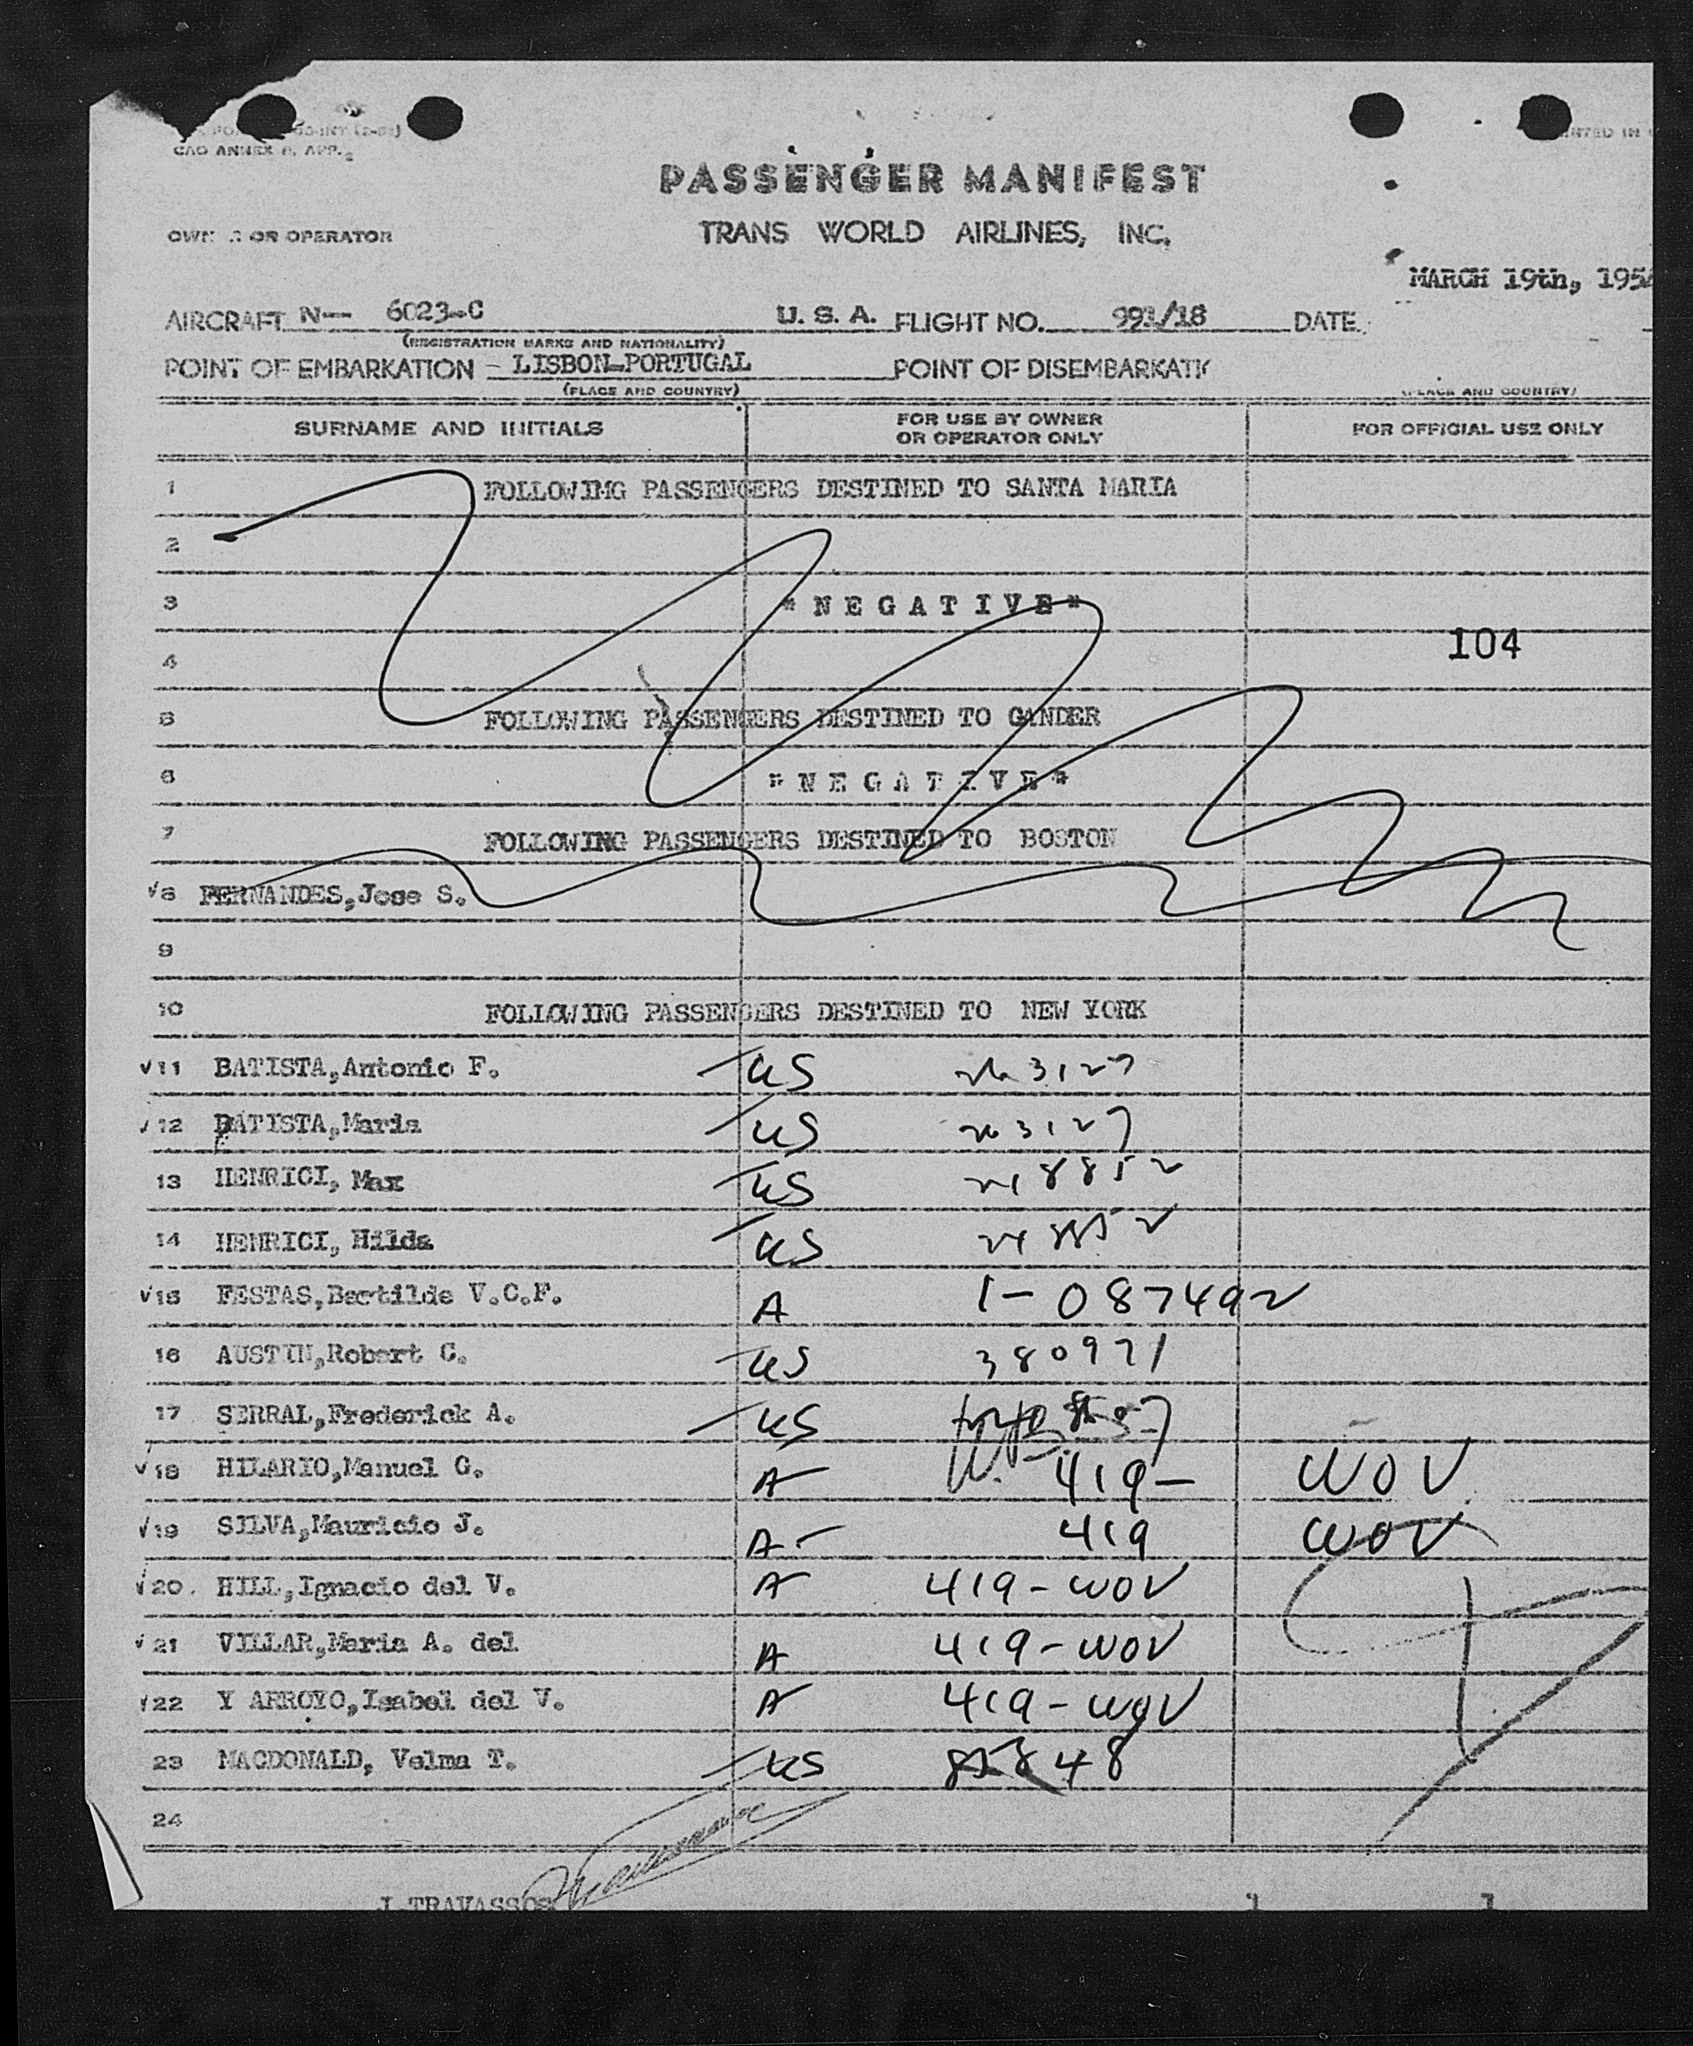 CAO ANNEX 9, APP.
PASSENGER MANIFEST
OWNER OR OPERATOR TRANS WORLD AIRLINES, INC.
MARCH 19th, 195
AIRCRAFT N-- 6023-C U. S. A. FLIGHT NO. 991/18 DATE
(REGISTRATION MARKS AND NATIONALITY)
POINT OF EMBARKATION - LISBON-PORTUGAL POINT OF DISEMBARKATI
(PLACE AND COUNTRY) (PLACE AND COUNTRY)
SURNAME AND INITIALS FOR USE BY OWNER OR OPERATOR ONLY FOR OFFICIAL USE ONLY
1 FOLLOWING PASSENGERS DESTINED TO SANTA MARIA
2
3 "N E G A T I V E"
104
4
5 FOLLOWING PASSENGERS DESTINED TO GANDER
6 "N E G A T I V E"
7 FOLLOWING PASSENGERS DESTINED TO BOSTON
8 FERNANDES,Jose S.
9
10 FOLLOWING PASSENGERS DESTINED TO NEW YORK
11 BATISTA,Antonio F. US 263127
12 BATISTA,Maria US 263127
13 HENRICI, Max US 218852
14 HENRICI, Hilda US 218852
15 FESTAS,Bertilde V.C.F. A 1-0387492
16 AUSTIN,Robert C. US 380971
17 SERRAL,Frederick A. US
18 HILARIO,Manuel G. A 419- WOV
19 SILVA,Mauricio J. A- 419 WOV
20. HILL,Ignacio del V. A 419-WOV
21 VILLAR,Maria A. del A 419-WOV
22 Y ARROYO,Isabel del V. A 419-WOV
23 MACDONALD, Velma T. US 85848
24
J.TRAVASSOS